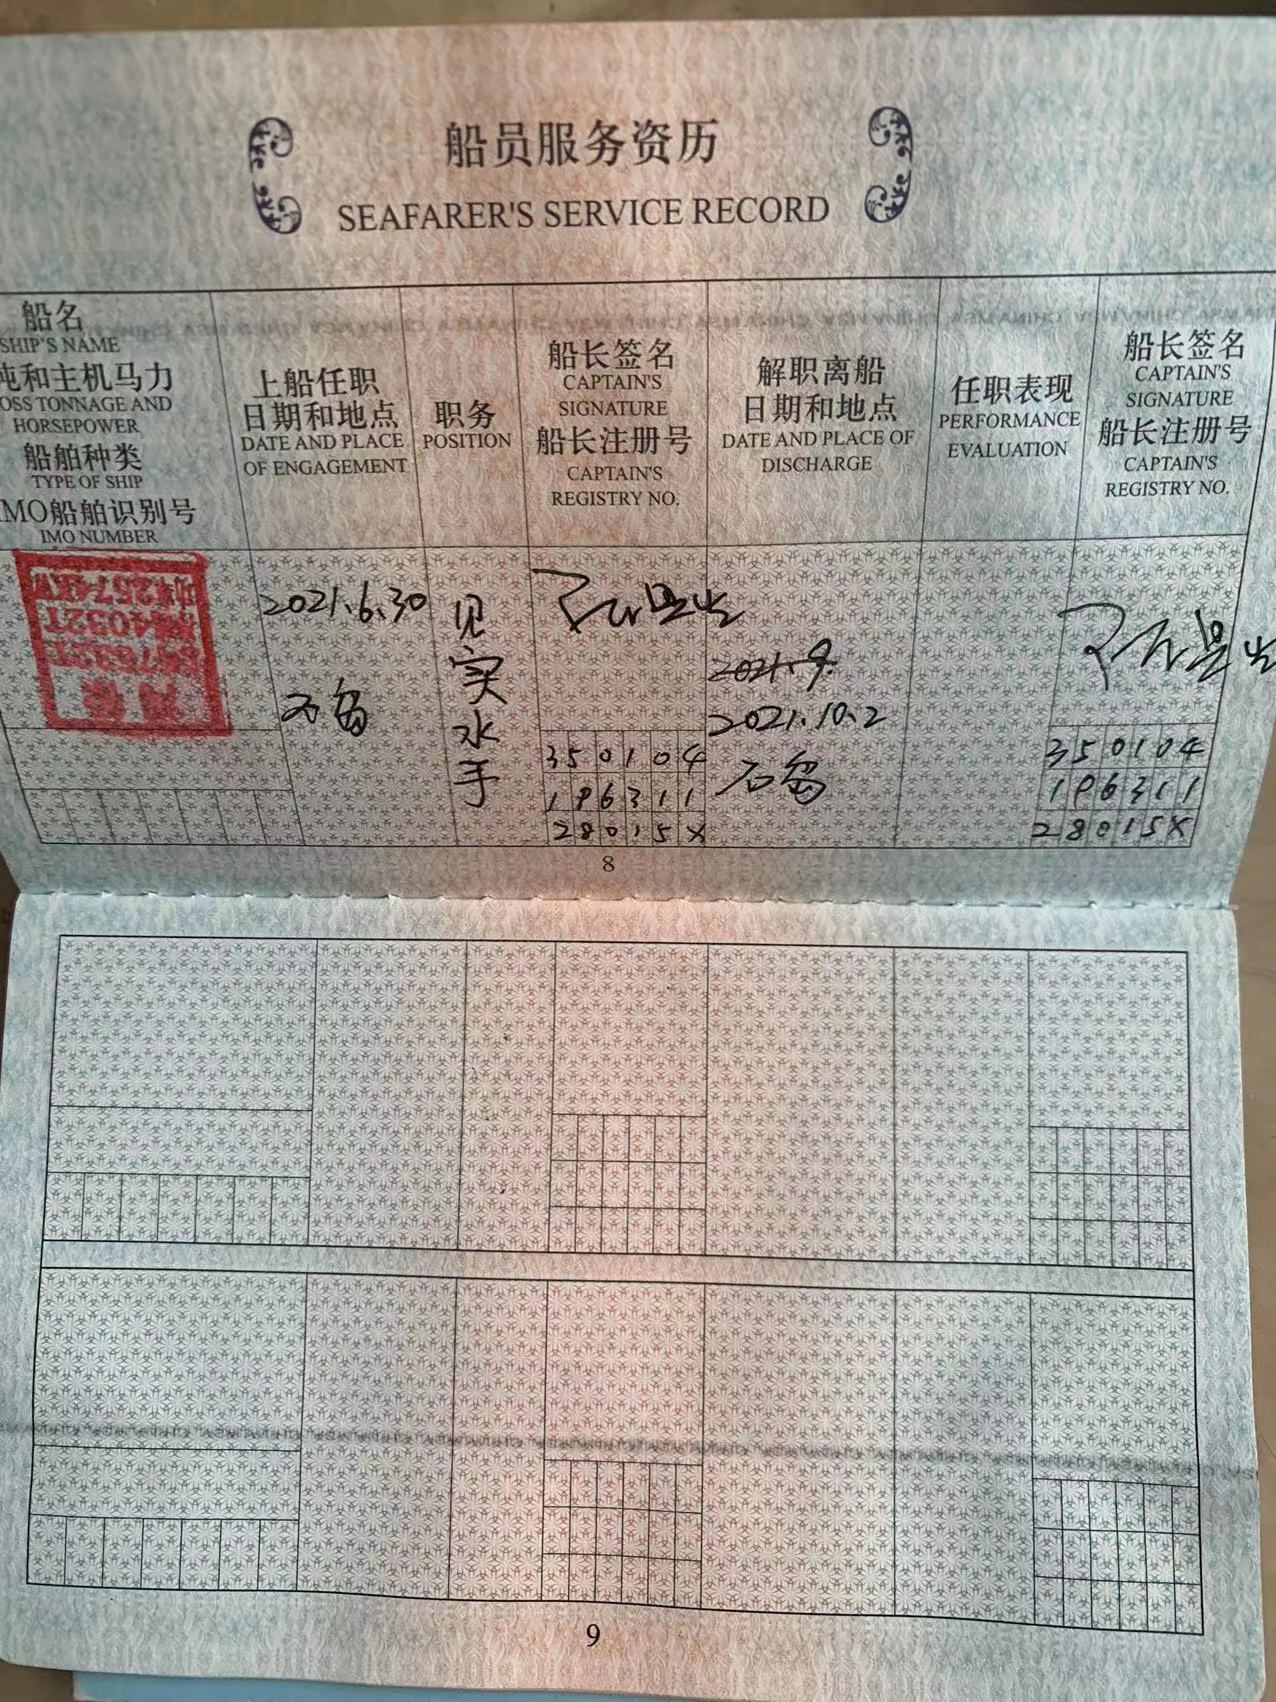 船员服务资历
SEAFARER'S SERVICE RECORD
船名
SHIP'S NAME
吨和主机马力
OSS TONNAGE AND
HORSEPOWER
船舶种类
TYPE OF SHIP
IMO船舶识别号
IMO NUMBER
上船任职
日期和地点
DATE AND PLACE
OF ENGAGEMENT
职务
POSITION
船长签名
CAPTAIN'S
SIGNATURE
船长注册号
CAPTAIN'S
REGISTRY NO.
解职离船
日期和地点
DATE AND PLACE OF
DISCHARGE
任职表现
PERFORMANCE
EVALUATION
船长签名
CAPTAIN'S
SIGNATURE
船长注册号
CAPTAIN'S
REGISTRY NO.
2021.6.30
石岛
见
实
水
手
350104
196311
28015X
2021.9.
2021.10.2
石岛
350104
196311
28015X
8
9